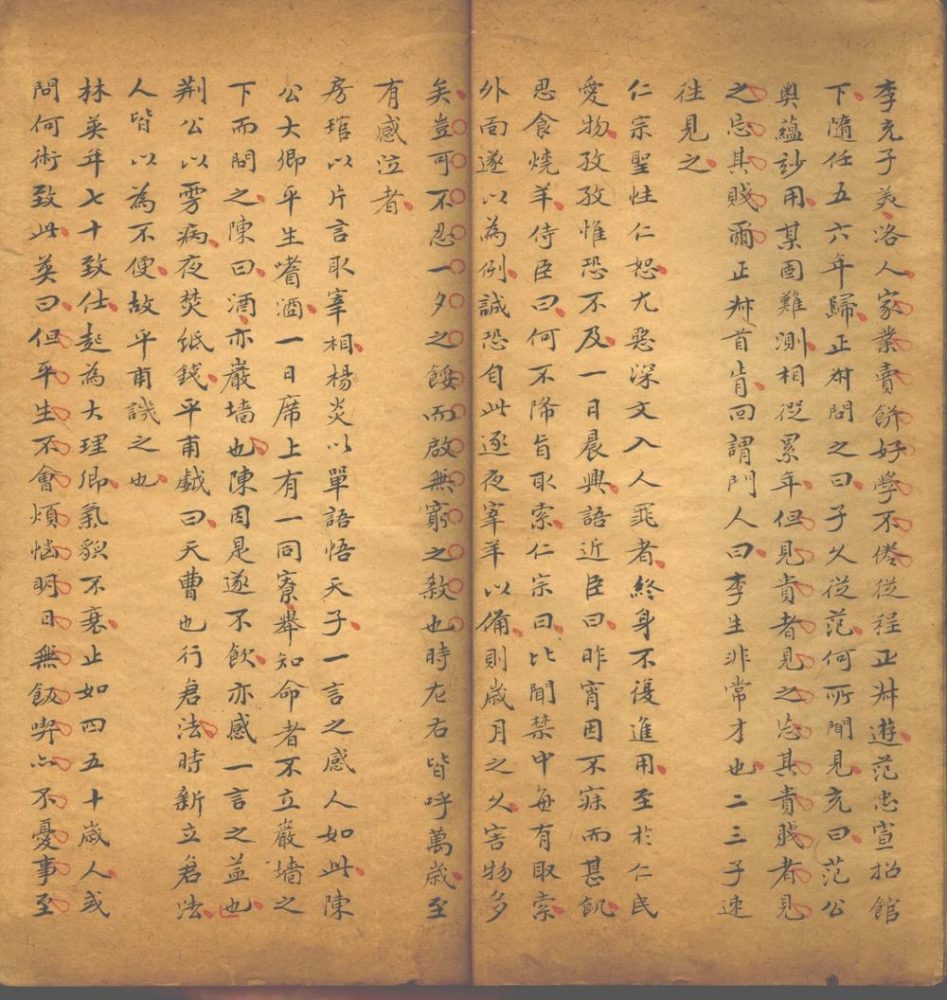 李充子美洛人家業賣餅好學不倦從程正叔遊范忠宣招館
下隨任五六年歸正叔問之曰子久從范何所聞見充曰范公
奧蘊妙用某固難測相從累年但見貴者見之忘其貴賤者見
之忘其賤爾正叔首肯回謂門人曰李生非常才也二三子速
往見之
仁宗聖性仁恕尤惡深文入人罪者終身不復進用至於仁民
愛物孜孜惟恐不及一日晨興語近臣曰昨宵因不寐而甚飢
思食燒羊侍臣曰何不降旨取索仁宗曰比聞禁中每有取索
外面遂以為例誠恐自此逐夜宰羊以備則歲月之久害物多
矣豈可不忍一夕之餒而啟無窮之殺也時左右皆呼萬歲至
有感泣者
房琯以片言取宰相楊炎以單語悟天子一言之感人如此陳
公大卿平生嗜酒一日席上有一同寮舉知命者不立巖墻之
下而問之陳曰酒亦巖墻也陳因是遂不飲亦感一言之益也
荆公以雱病夜焚紙錢平甫戲曰天曹也行倉法時新立倉法
人皆以為不便故平甫譏之也
林英年七十致仕起為大理卿氣貌不衰止如四五十歲人或
問何術致此英曰但平生不會煩惱明日無飯喫亦不憂事至